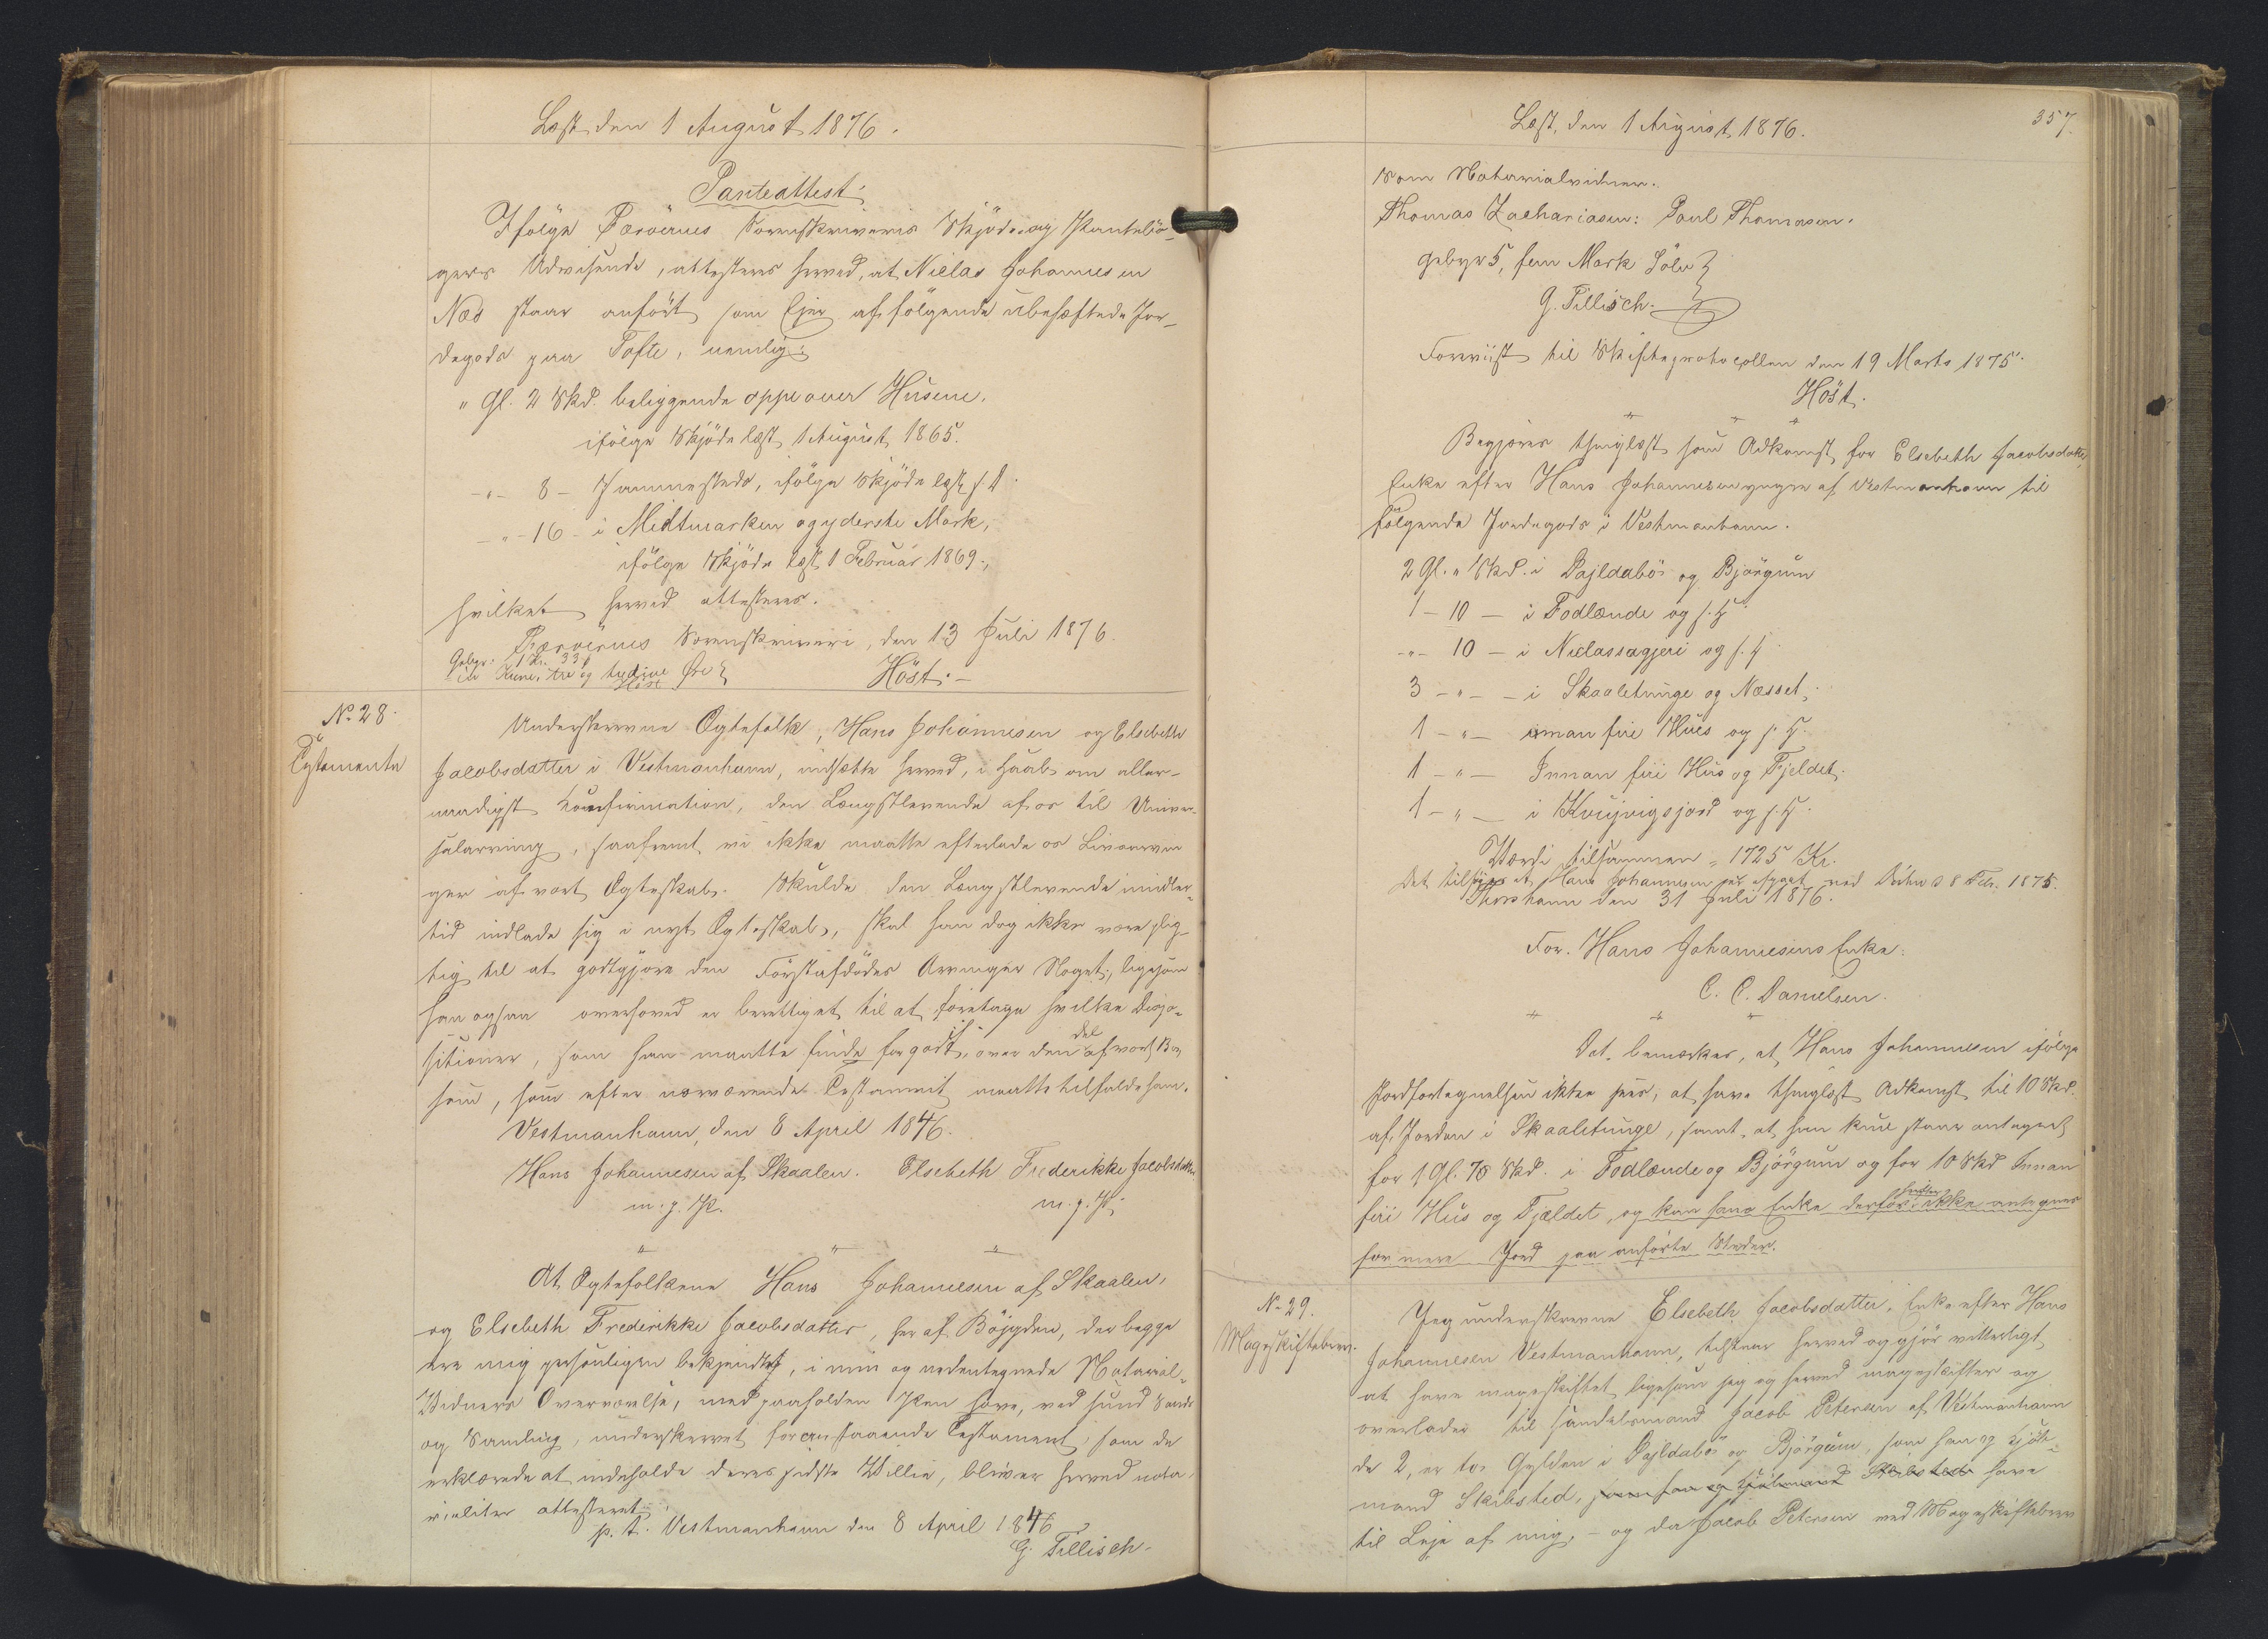 Læst den 1 August 1876.
Panteattest:
Ifölge Færöernes Sorenskriveries Skjöde og Pantebö-
gers Udvisende, attesteres herved, at Niclas Johannesen
Næs staar anfört som Ejer af fölgende ubehæftede Jor-
degods paa Tofte, nemlig:
" Gl. 2 Skd. beliggende oppe over Husene,
ifölge Skjöde læst 1 August 1865.
-"- 8 - sammesteds, ifölge Skjöde læst s. D.
-"- 16 - i Midtmarken og yderste Mark,
ifölge Skjöde læst 1 Februar 1869.,
hvilket herved attesteres.
Færöernes Sorenskriveri, den 13 Juli 1876.
Gebyr: 1 Kr. 33
en Krone, tre og tredive Öre Höst.-
Höst
No 28.
Testamente
Underskrevne Ægtefolk, Hans Johannesen og Elsebeth
Jacobsdatter i Vestmanhavn, indsætte herved, i Haab om aller-
naadigst Confirmation, den Længstlevende af os til Univer-
salarving, saafremt vi ikke maatte efterlade os Livsarvin
ger af vort Ægteskab. Skulde den Længstlevende imidler-
tid indlade sig i nyt Ægteskab, skal han dog ikke være plig-
tig til at godtgjöre den Förstafdödes Arvinger Noget, ligesom
han ogsaa overhoved er berettiget til at foretage hvilke Dispo-
sitioner, som han maatte finde for godt, over den Del af vort Bo
som, som efter nærværende Testament maatte tilfalde ham.
Vestmanhavn, den 8 April 1846.
Hans Johannesen af Skaalen. Elsebeth Frederikke Jacobsdatter
m. f. P. m. f. P.
At Ægtefolkene Hans Johannesen af Skaalen,
og Elsebeth Frederikke Jacobsdatter, her af Böjgden, der begge
ere mig personligen bekjendte, i min og nedentegnede Notarial-
Vidners Overværelse, med paaholden Pen have, ved sund Sands
og Samling, underskrevet foranstaaende Testament, som de
erklærede at indeholde deres sidste Villie, bliver herved nota-
rialiter attesteret.
p. t. Vestmanhavn den 8 April 1846
G. Tillisch.
Læst, den 1 August 1876.
357.
Som Notarialvidner.
Thomas Zachariasen: Poul Thomasen.
Gebyr 5, fem Mark Sölv
G. Tillisch.
Forevist til Skifteprotocollen den 19 Marts 1875.
Höst.
Begjæres thinglæst som Adkomst for Elsebeth Jacobsdatter,
Enke efter Hans Johannesen yngre af Vestmanhavn til
fölgende Jordegods i Vestmanhavn.
2 Gl. " Skd. i Dajldabö og Björgum
1 - 10 - i Fodlænde og s. H.
-"- 10 - i Niclassagjeri og s. H.
3 - " - i Skaaletunge og Næsset,
1 - " - innan firi Hues og s. H.
1 - " - Innan firi Hus og Fjeldet,
1 - " - i Kvujvigsjord og s. H.
Værdi tilsammen = 1725 Kr.
Det tilföjes at Hans Johannesen er afgaaet ved Döden d 8 Feb. 1875.
Thorshavn den 31 Juli 1876.
For. Hans Johannesens Enke:
C. C. Danielsen.
Det bemærkes, at Hans Johannesen ifölge
Jordfortegnelsen ikke sees, at have thinglæst Adkomst til 10 Skd.
af Jorden i Skaaletunge, samt, at han kun staar antegnet
for 1 Gl. 78 Skd. i Fodlænde og Björgum og for 10 Skd Innan
firi Hus og Fjældet, og kan hans Enke derfor heller ikke antegnes
for mere Jord paa anförte Steder.
No 29.
Mageskiftebrev.
Jeg underskrevne Elsebeth Jacobsdatter, Enke efter Hans
Johannesen Vestmanhavn, tilstaar herved og gjör vitterligt
at have mageskiftet, ligesom jeg og herved mageskifter og
overlader til Handelsmand Jacob Petersen af Vestmanhavn
de 2, er to, Gylden i Dajldabö og Björgum, som han og Hjöl-
mand Skibsted, som han og Hjölmand Skibsted have
til Leje af mig, - og da Jacob Petersen ved Mageskiftebrev